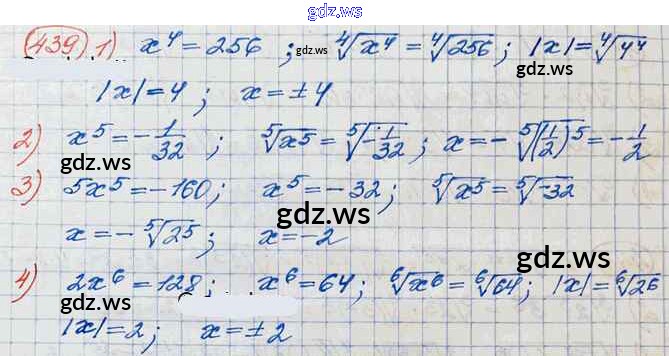 gdz.ws
439 1) x⁴ = 256 ; ⁴√x⁴ = ⁴√256 ; |x| = ⁴√4⁴
|x| = 4 ; x = ±4
2) x⁵ = -1/32 ; ⁵√x⁵ = ⁵√-1/32 ; x = -⁵√(1/2)⁵ = -1/2
gdz.ws gdz.ws
3) 5x⁵ = -160 ; x⁵ = -32 ; ⁵√x⁵ = ⁵√-32
gdz.ws
x = -⁵√2⁵ ; x = -2
gdz.ws
4) 2x⁶ = 128 ; x⁶ = 64 ; ⁶√x⁶ = ⁶√64 ; |x| = ⁶√2⁶
gdz.ws gdz.ws
|x| = 2 ; x = ±2